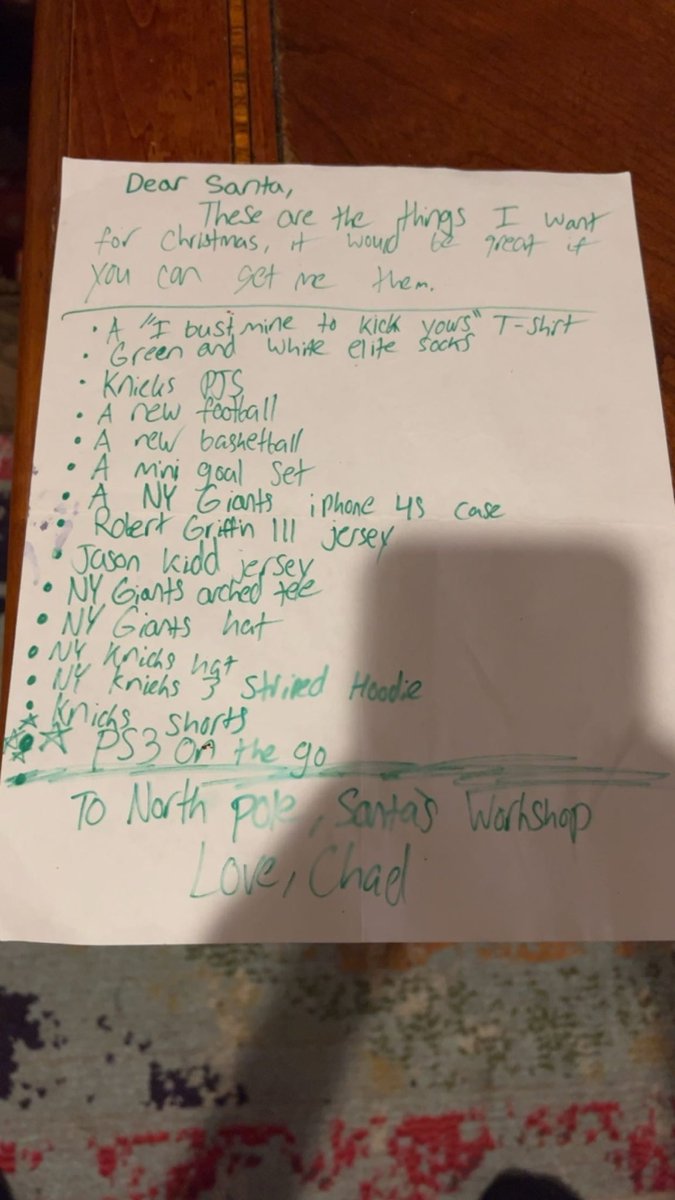 Dear Santa,
These are the things I want
for Christmas, it would be great if
you can get me them.
• A "I bust mine to kick yours" T-shirt
• Green and white elite socks
• Knicks PJS
• A new football
• A new basketball
• A mini goal set
• A NY Giants iPhone 4s case
• Robert Griffin III jersey
• Jason Kidd jersey
• NY Giants arched tee
• NY Giants hat
• NY Knicks hat
• NY Knicks 3 Striped Hoodie
• Knicks shorts
• PS3 On the go
To North pole, Santa's Workshop
Love, Chad